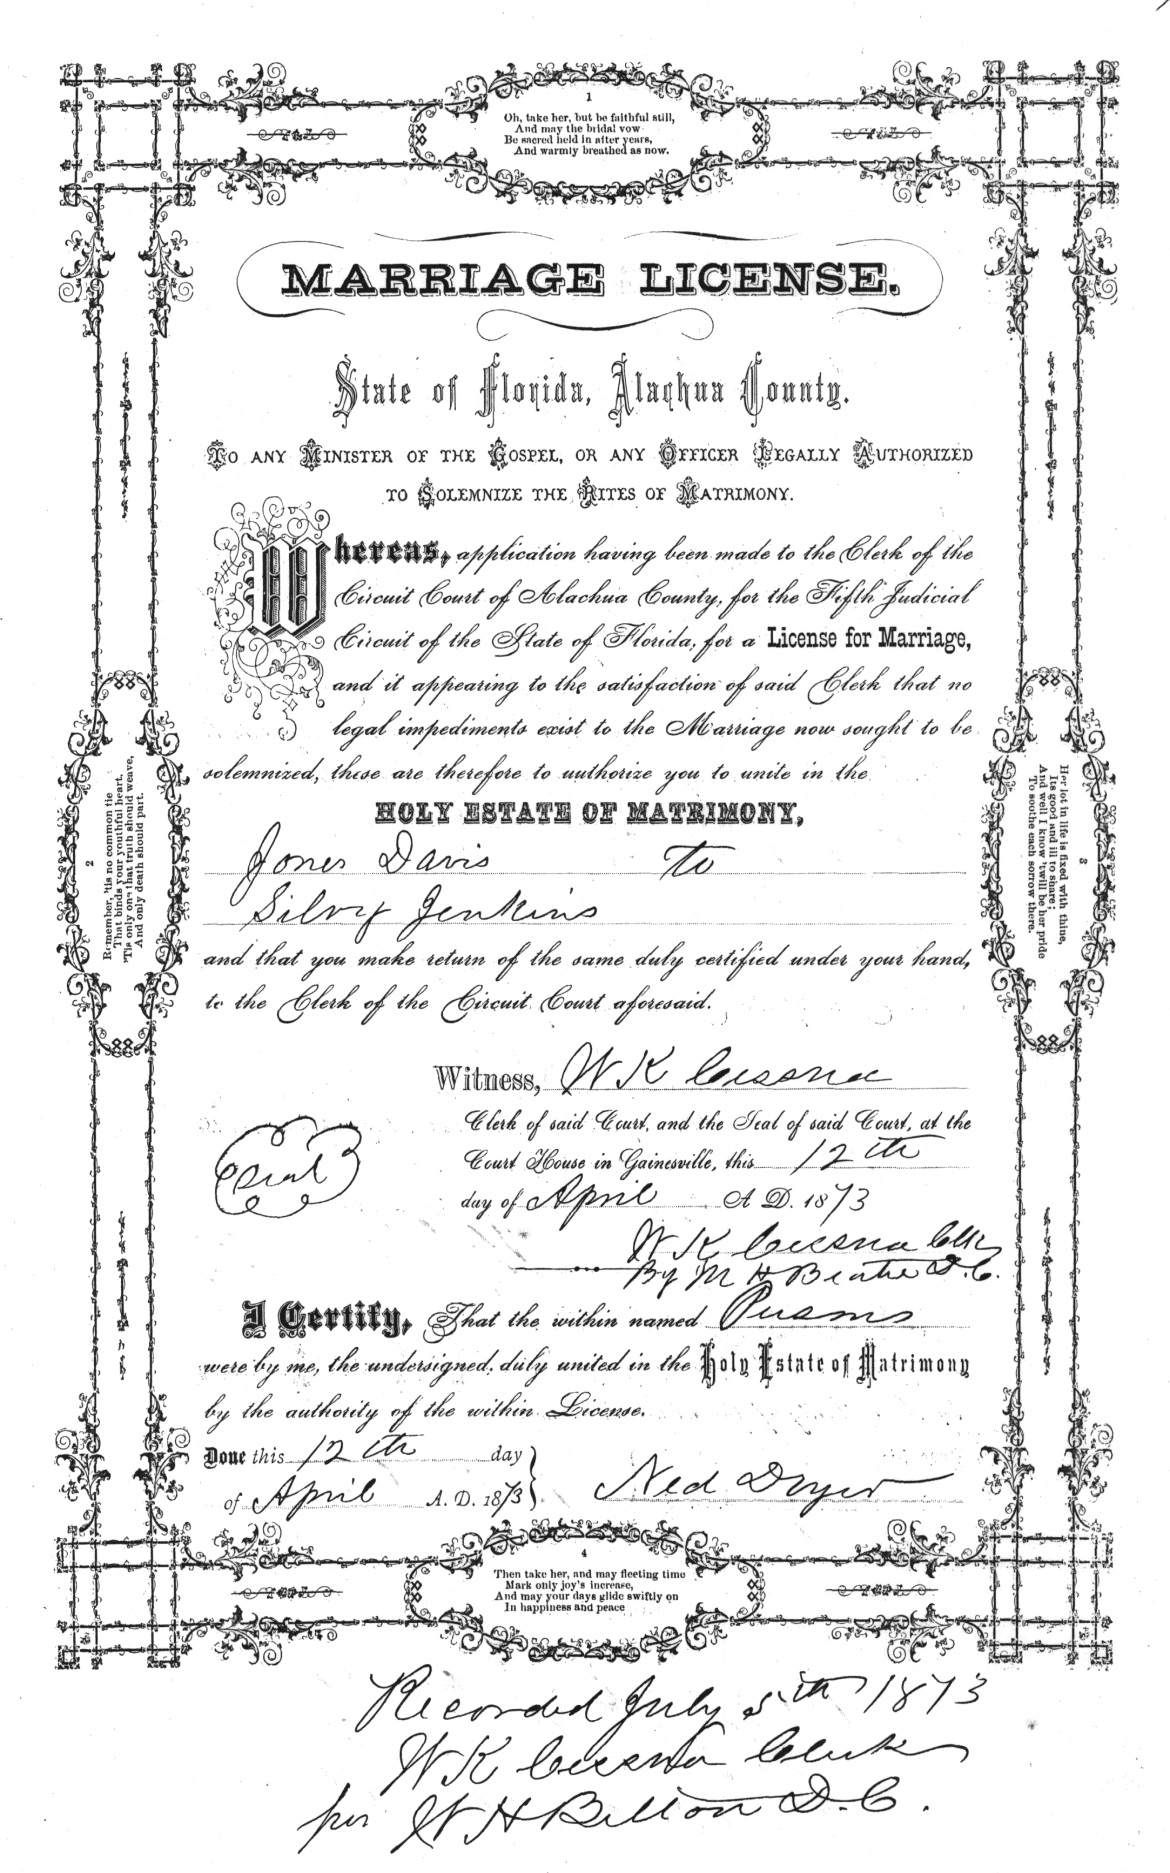 1
Oh, take her, but be faithful still,
And may the bridal vow
Be sacred held in after years,
And warmly breathed as now.
MARRIAGE LICENSE.
State of Florida, Alachua County.
To any Minister of the Gospel, or any Officer Legally Authorized
to Solemnize the Rites of Matrimony.
Whereas, application having been made to the Clerk of the
Circuit Court of Alachua County, for the Fifth Judicial
Circuit of the State of Florida, for a License for Marriage,
and it appearing to the satisfaction of said Clerk that no
legal impediments exist to the Marriage now sought to be
solemnized, these are therefore to authorize you to unite in the
HOLY ESTATE OF MATRIMONY,
Jones Davis to
Silvy Jenkins
and that you make return of the same duly certified under your hand,
to the Clerk of the Circuit Court aforesaid.
2
Remember, 'tis no common tie
That binds your youthful heart,
'Tis only one that truth should weave,
And only death should part.
3
Her lot in life is fixed with thine,
Its good and ill to share;
And well I know 'twill be her pride
To soothe each sorrow there.
Witness, W K Cessna
Clerk of said Court, and the Seal of said Court, at the
Court House in Gainesville, this 12th
day of April A D. 1873
Seal
W K Cessna Clk
By M H D.C.
I Certify, That the within named
were by me, the undersigned, duly united in the Holy Estate of Matrimony
by the authority of the within License.
Done this 12th day
of April A. D. 1873
Ned Dryer
4
Then take her, and may fleeting time
Mark only joy's increase,
And may your days glide swiftly on
In happiness and peace
Recorded July 5th 1873
W K Cessna Clerk
per W H Belton D.C.